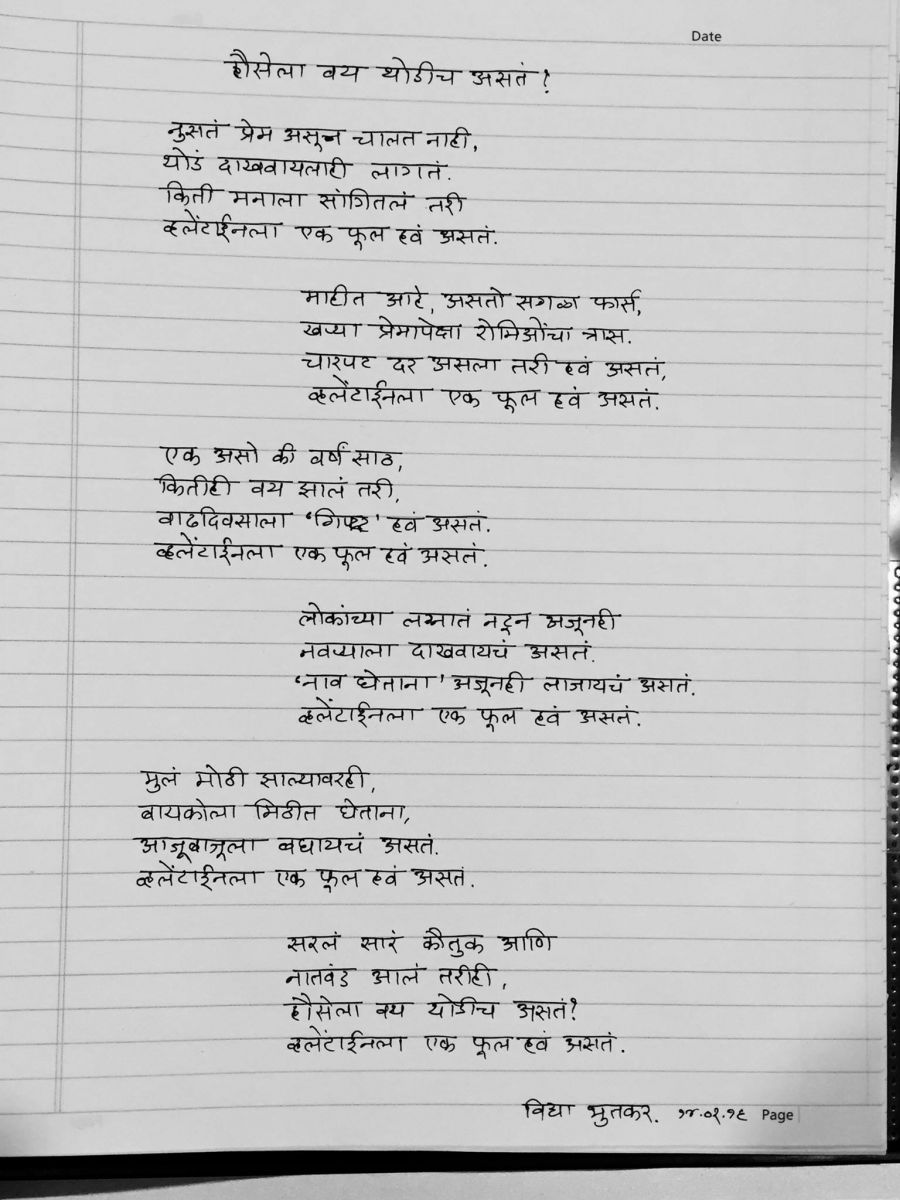 Date
हौसेला वय थोडीच असतं?
नुसतं प्रेम असून चालत नाही,
थोडं दाखवायलाही लागतं.
किती मनाला सांगितलं तरी
व्हॅलेंटाईनला एक फूल हवं असतं.
माहीत आहे, असतो सगळा फार्स,
खऱ्या प्रेमापेक्षा रोमिओंचा त्रास.
चारपट दर असला तरी हवं असतं,
व्हॅलेंटाईनला एक फूल हवं असतं.
एक असो की वर्षं साठ,
कितीही वय झालं तरी,
वाढदिवसाला 'गिफ्ट' हवं असतं.
व्हॅलेंटाईनला एक फूल हवं असतं.
लोकांच्या लग्नातं नटून अजूनही
नवऱ्याला दाखवायचं असतं.
'नाव घेताना' अजूनही लाजायचं असतं.
व्हॅलेंटाईनला एक फूल हवं असतं.
मुलं मोठी झाल्यावरही,
बायकोला मिठीत घेताना,
आजूबाजूला बघायचं असतं.
व्हॅलेंटाईनला एक फूल हवं असतं.
सरलं सारं कौतुक आणि
नातवंड आलं तरीही,
हौसेला वय थोडीच असतं?
व्हॅलेंटाईनला एक फूल हवं असतं.
विद्या भुतकर. १४.०२.१९ Page